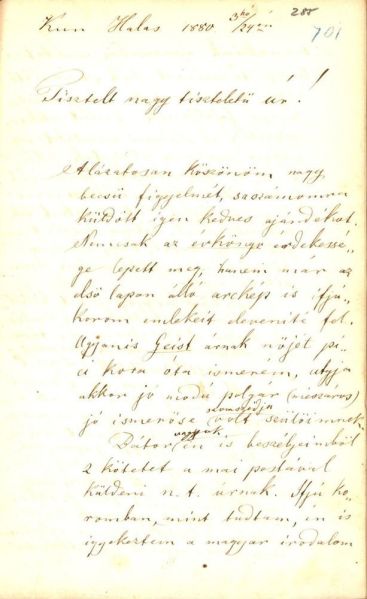 Kun Halas 1880 3hó/24én
288
701
Tisztelt nagy tiszteletü úr!
Alázatosan köszönöm nagy
becsü figyelmét, s számomra
küldött igen kedves ajándékot.
Nemcsak az évkönyv érdekessé-
ge lepett meg, hanem már az
első lapon álló arckép is ifjú-
korom emlékeit eleveníté fel.
Ugyanis Geist úrnak nőjét pi-
ci kora óta ismerém, atyja
akkor jó módú polgár (mészáros)
jó ismerőse s szomszédja volt szülőimnek.
Bátor vagyok én is beszélyeimből
2 kötetet a mai postával
küldeni n. t. úrnak. Ifjú ko-
romban, mint tudtam, én is
igyekeztem a magyar irodalom